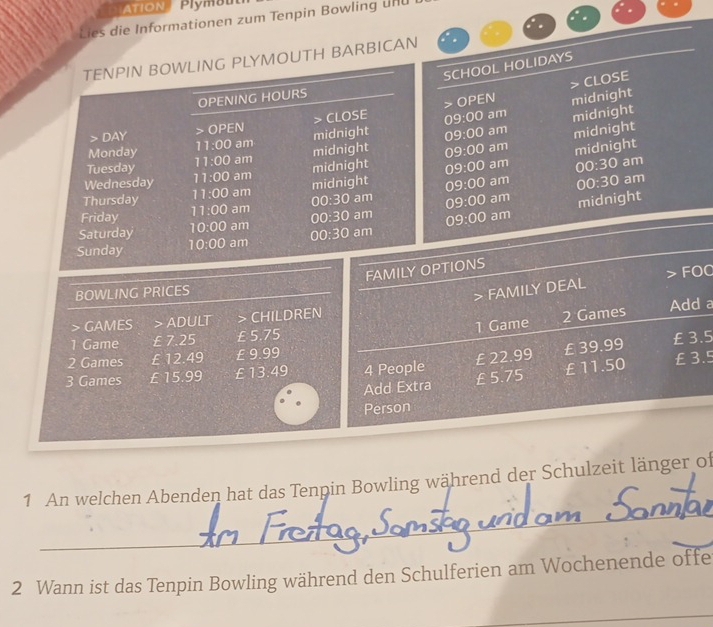 MATION Plymouth
Lies die Informationen zum Tenpin Bowling und
TENPIN BOWLING PLYMOUTH BARBICAN
OPENING HOURS
> DAY > OPEN > CLOSE
Monday 11:00 am midnight
Tuesday 11:00 am midnight
Wednesday 11:00 am midnight
Thursday 11:00 am midnight
Friday 11:00 am 00:30 am
Saturday 10:00 am 00:30 am
Sunday 10:00 am 00:30 am
SCHOOL HOLIDAYS
> OPEN > CLOSE
09:00 am midnight
09:00 am midnight
09:00 am midnight
09:00 am midnight
09:00 am 00:30 am
09:00 am 00:30 am
09:00 am midnight
BOWLING PRICES
> GAMES > ADULT > CHILDREN
1 Game £ 7.25 £ 5.75
2 Games £ 12.49 £ 9.99
3 Games £ 15.99 £ 13.49
FAMILY OPTIONS
> FAMILY DEAL > FOO
1 Game 2 Games Add a
4 People £ 22.99 £ 39.99 £ 3.5
Add Extra £ 5.75 £ 11.50 £ 3.5
Person
1 An welchen Abenden hat das Tenpin Bowling während der Schulzeit länger of
Am Freitag, Samstag und am Sonntag
2 Wann ist das Tenpin Bowling während den Schulferien am Wochenende offe